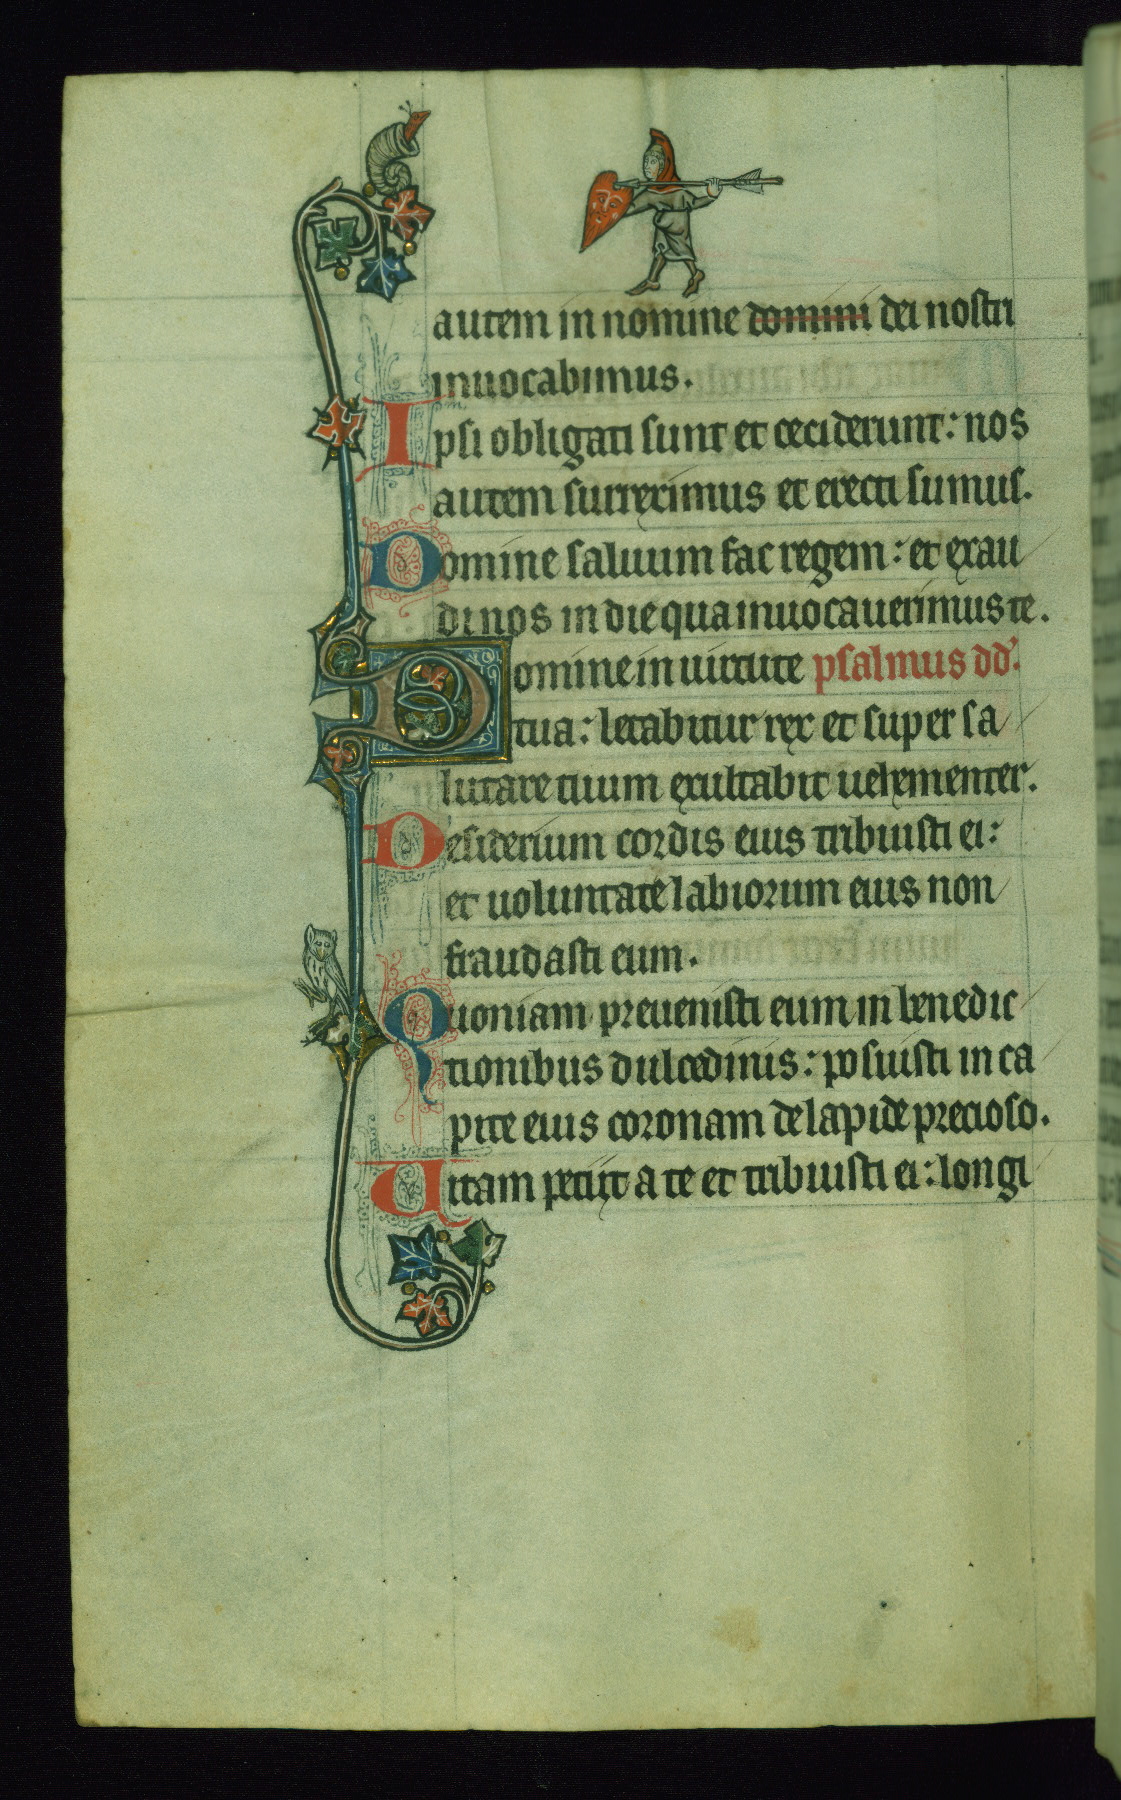 autem in nomine domini dei nostri
inuocabimus.
Ipsi obligati sunt et ceciderunt: nos
autem surreximus et erecti sumus.
Domine saluum fac regem: et exau
di nos in die qua inuocauerimus te.
Domine in uirtute psalmus dd'.
tua: letabitur rex et super sa
lutare tuum exultabit uehementer.
Desiderium cordis eius tribuisti ei:
et uoluntate labiorum eius non
fraudasti eum.
Quoniam preuenisti eum in benedic
tionibus dulcedinis: posuisti in ca
pite eius coronam de lapide precioso.
Uitam petiit a te et tribuisti ei: longi